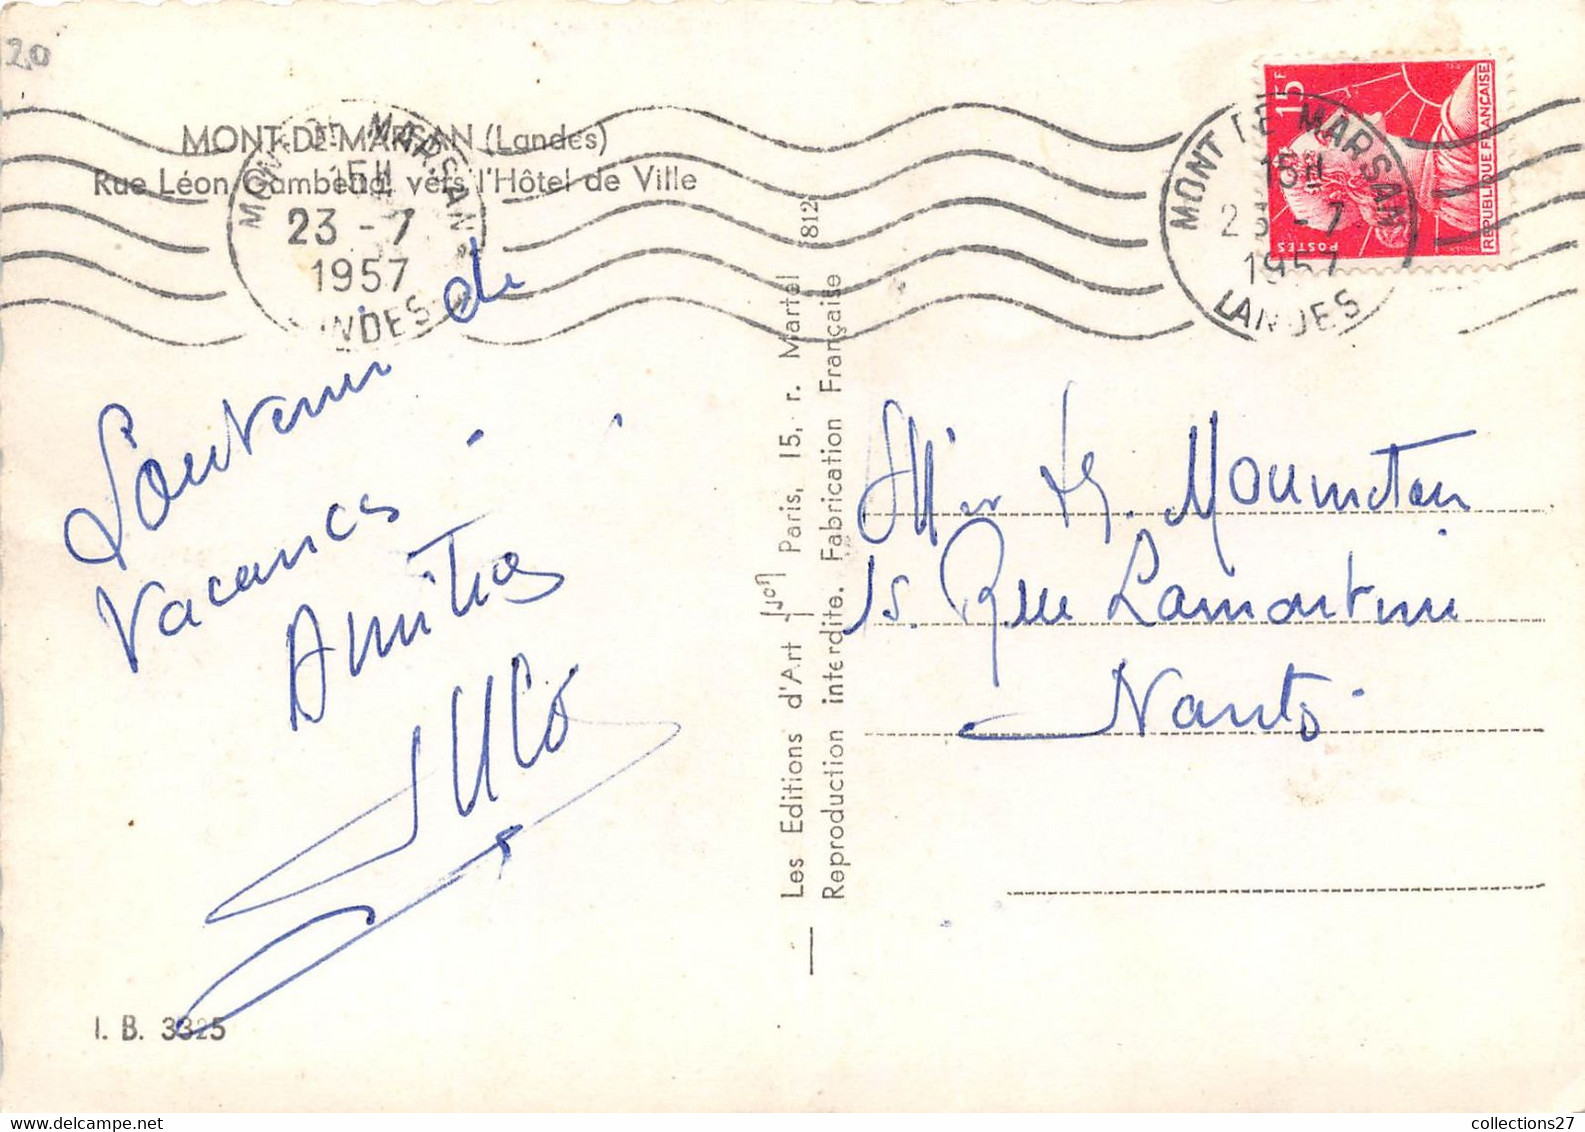 20
MONT-DE-MARSAN (Landes)
Rue Léon Gambetta, vers l'Hôtel de Ville
MONT DE MARSAN
15H
23 - 7
1957
LANDES
MONT DE MARSAN
15H
23 - 7
1957
LANDES
15F
POSTES
REPUBLIQUE FRANÇAISE
Souvenir de
Vacances
Amitiés
Les Editions d'Art Yvon Paris, 15, r. Martel 812
Reproduction interdite. Fabrication Française
15. Rue Lamartine
Nantes
I. B. 3325
collections27